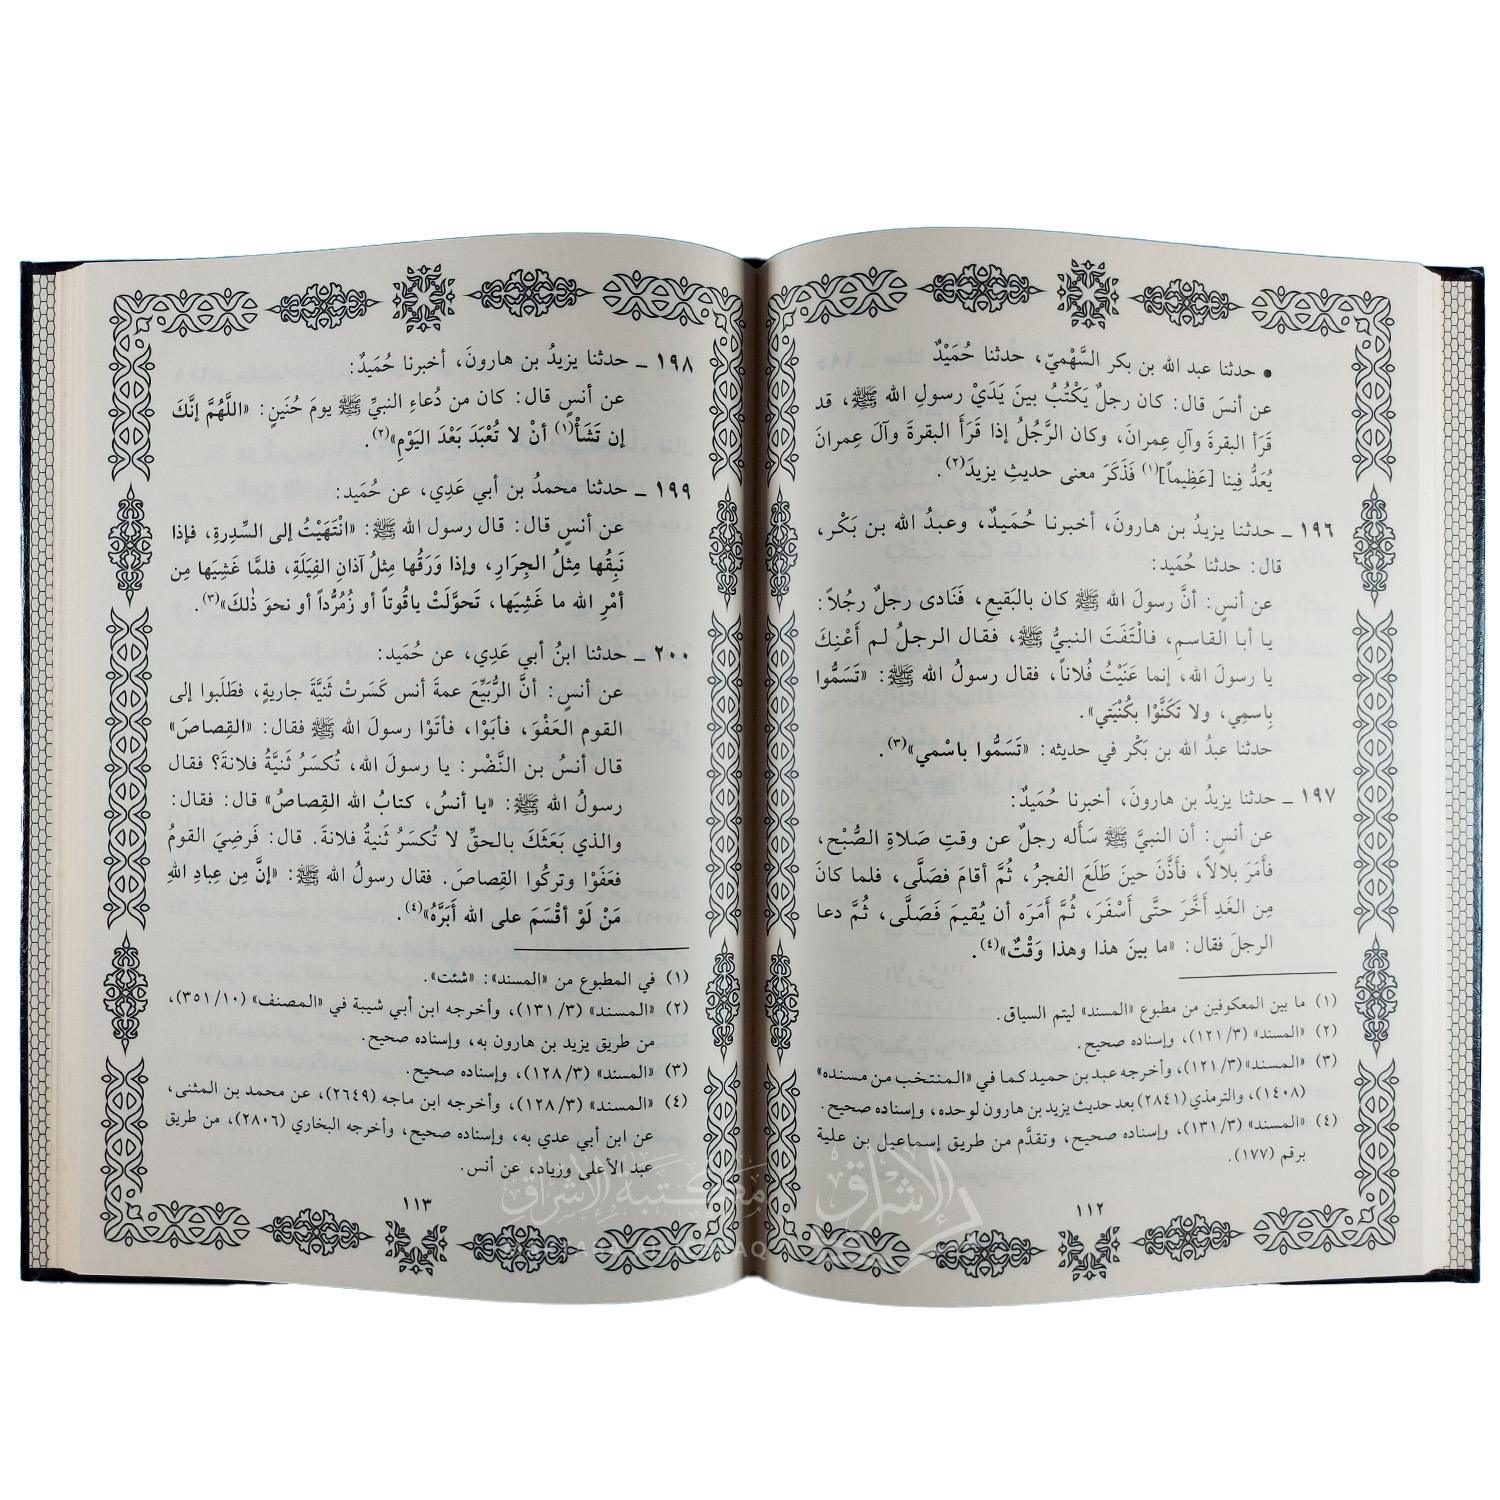 • حدثنا عبد الله بن بكر السَّهْميّ، حدثنا حُمَيْدٌ
عن أنسَ قال: كان رجلٌ يَكْتُبُ بينَ يَدَيْ رسولِ الله ﷺ، قد
قَرَأ البقرةَ وآلِ عِمرانَ، وكان الرَّجُلُ إذا قَرَأ البقرةَ وآلَ عِمرانَ
يُعَدُّ فِينا [عَظِيماً](١) فَذَكَرَ معنى حديثِ يزيدَ(٢).
١٩٦ ـ حدثنا يزيدُ بن هارونَ، أخبرنا حُمَيدٌ، وعبدُ الله بن بَكْر،
قال: حدثنا حُمَيد:
عن أنسٍ: أنَّ رسولَ الله ﷺ كان بالبَقيعِ، فَنَادى رجلٌ رجُلاً:
يا أبا القاسمِ، فالْتَفَتَ النبيُّ ﷺ، فقال الرجلُ لم أَعْنِكَ
يا رسولَ الله، إنما عَنَيْتُ فُلاناً، فقال رسولُ الله ﷺ: «تَسَمُّوا
بِاسمِي، ولا تَكَنَّوْا بِكُنْيَتِي».
حدثنا عبدُ الله بن بَكْر في حديثه: «تَسَمُّوا باسْمي»(٣).
١٩٧ ـ حدثنا يزيدُ بن هارونَ، أخبرنا حُمَيدٌ:
عن أنسٍ: أن النبيَّ ﷺ سَأَله رجلٌ عن وقتِ صَلاةِ الصُّبْح،
فأَمَرَ بلالاً، فأَذَّنَ حينَ طَلَعَ الفجرُ، ثُمَّ أقامَ فصَلَّى، فلما كانَ
مِن الغَدِ أخَّرَ حتَّى أسْفَرَ، ثُمَّ أمَرَه أن يُقيمَ فَصَلَّى، ثُمَّ دعا
الرجلَ فقال: «ما بينَ هذا وهذا وَقْتٌ»(٤).
(١) ما بين المعكوفين من مطبوع «المسند» ليتم السياق.
(٢) «المسند» (٣/ ١٢١)، وإسناده صحيح.
(٣) «المسند» (٣/ ١٢١)، وأخرجه عبد بن حميد كما في «المنتخب من مسنده»
(١٤٠٨)، والترمذي (٢٨٤١) بعد حديث يزيد بن هارون لوحده، وإسناده صحيح.
(٤) «المسند» (٣/ ١٣١)، وإسناده صحيح، وتقدَّم من طريق إسماعيل بن علية
برقم (١٧٧).
١١٢
١٩٨ ـ حدثنا يزيدُ بن هارونَ، أخبرنا حُمَيدٌ:
عن أنسٍ قال: كان من دُعاءِ النبيِّ ﷺ يومَ حُنَينٍ: «اللَّهُمَّ إنَّكَ
إن تَشَأْ(١) أنْ لا تُعْبَدَ بَعْدَ اليَوْمِ»(٢).
١٩٩ ـ حدثنا محمدُ بن أبي عَدِي، عن حُمَيد:
عن أنسٍ قال: قال رسول الله ﷺ: «انْتَهَيْتُ إلى السِّدِرةِ، فإذا
نَبِقُها مِثلُ الجِرَارِ، وإذا وَرَقُها مِثلُ آذانِ الفِيَلَةِ، فلمَّا غَشِيَها مِن
أمْرِ الله ما غَشِيَها، تَحوَّلَتْ ياقُوتاً أو زُمُرُّداً أو نحوَ ذٰلكَ»(٣).
٢٠٠ ـ حدثنا ابنُ أبي عَدِي، عن حُمَيد:
عن أنسٍ: أنَّ الرُّبَيِّعَ عمةَ أنس كَسَرتْ ثَنيَّةَ جاريةٍ، فطَلَبوا إلى
القوم العَفْوَ، فأبَوْا، فأتَوْا رسولَ الله ﷺ فقال: «القِصاصَ»
قال أنسُ بن النَّضْر: يا رسولَ الله، تُكسَرُ ثَنيَّةُ فلانةَ؟ فقال
رسولُ الله ﷺ: «يا أنسُ، كتابُ الله القِصاصُ» قال: فقال:
والذي بَعَثَكَ بالحقِّ لا تُكسَرُ ثَنيةُ فلانةَ. قال: فَرَضِيَ القومُ
فعَفَوْا وتركُوا القِصاصَ. فقال رسولُ الله ﷺ: «إنَّ مِن عِبادِ اللهِ
مَنْ لَوْ أقْسَمَ على الله أَبَرَّهُ»(٤).
(١) في المطبوع من «المسند»: «شئت».
(٢) «المسند» (٣/ ١٣١)، وأخرجه ابن أبي شيبة في «المصنف» (١٠/ ٣٥١)،
من طريق يزيد بن هارون به، وإسناده صحيح.
(٣) «المسند» (٣/ ١٢٨)، وإسناده صحيح.
(٤) «المسند» (٣/ ١٢٨)، وأخرجه ابن ماجه (٢٦٤٩)، عن محمد بن المثنى،
عن ابن أبي عدي به، وإسناده صحيح، وأخرجه البخاري (٢٨٠٦)، من طريق
عبد الأعلى وزياد، عن أنس.
١١٣
مكتبة الإشراق
الإشراق